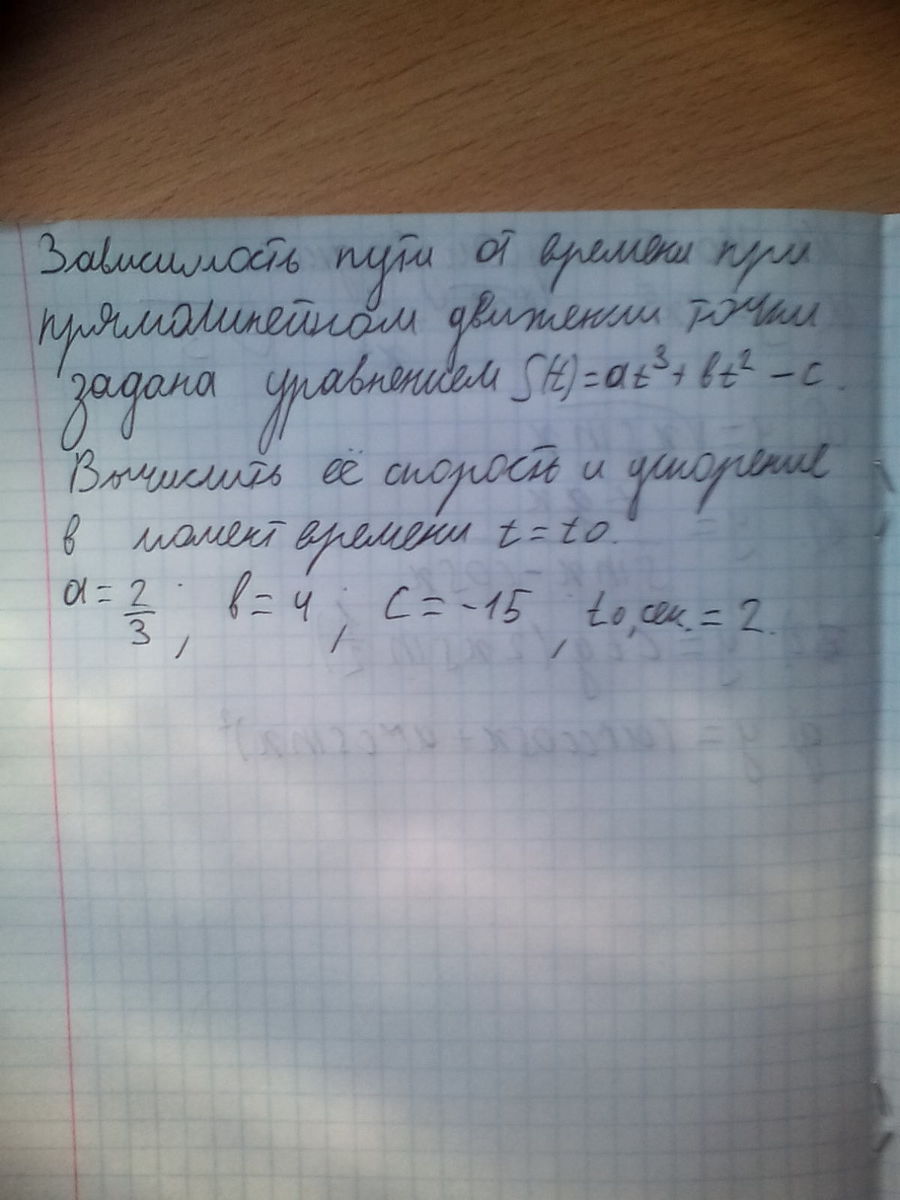 Зависимость пути от времени при
прямолинейном движении точки
задана уравнением S(t)=at³+bt²-c.
Вычислить её скорость и ускорение
в момент времени t=t0.
a=2/3; b=4; c=-15, t0,сек.=2.